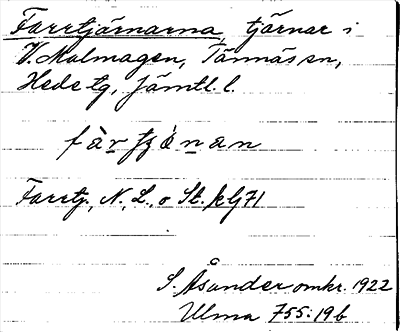 Farrtjärnarna, tjärnar i
V. Malmagen, Tännäs sn,
Hede tg, Jämtl. l.
Farrtj., N., L. o St. kG71
S. Åsander omkr. 1922
Ulma 755:19b